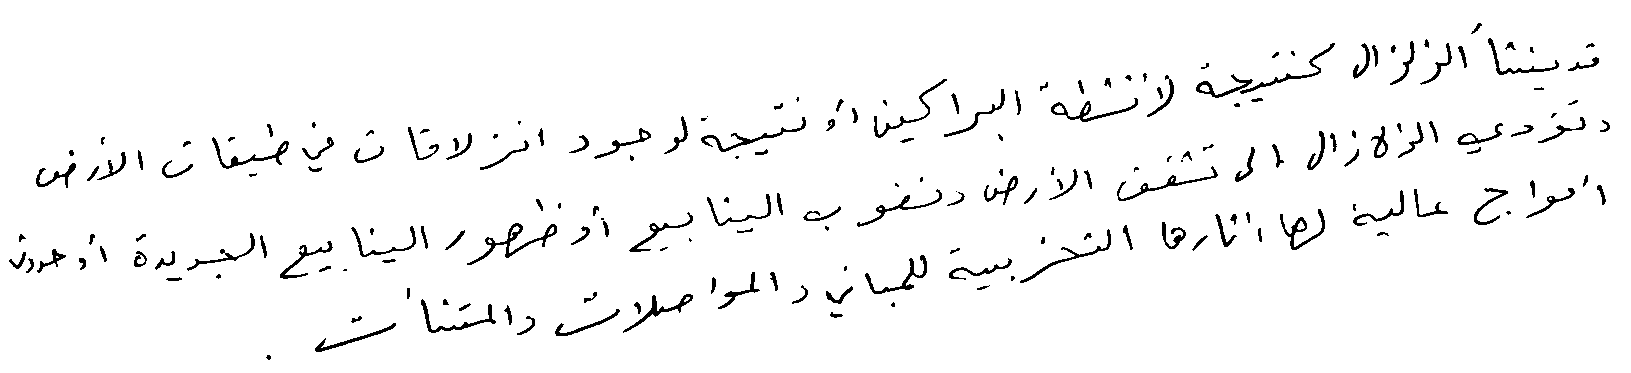 قد ينشأ الزلزال كنتيجة لأنشطة البراكين أو نتيجة لوجود انزلاقات في طبقات الأرض
وتؤدي الزلازال الى تشقق الأرض ونضوب الينابيع أو ظهور الينابيع الجديدة أو حدوث
أمواج عالية لها اثارها التخريبية للمباني والمواصلات والمنشأت .